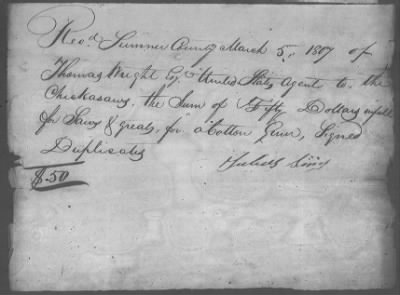 Rec.d Sumner County March 5. 1807 of
Thomas Wright Esq.r United States Agent to the
Chickasaws, the Sum of Fifty Dollars in full
for Saws & greats, for a Cotton Genn, Signed
Duplicates
$.50